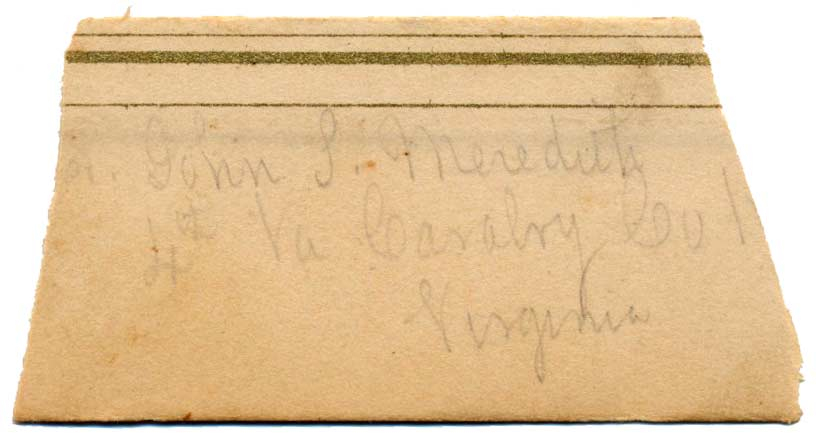 John S. Meredith
4th Va Cavalry Co
Virginia